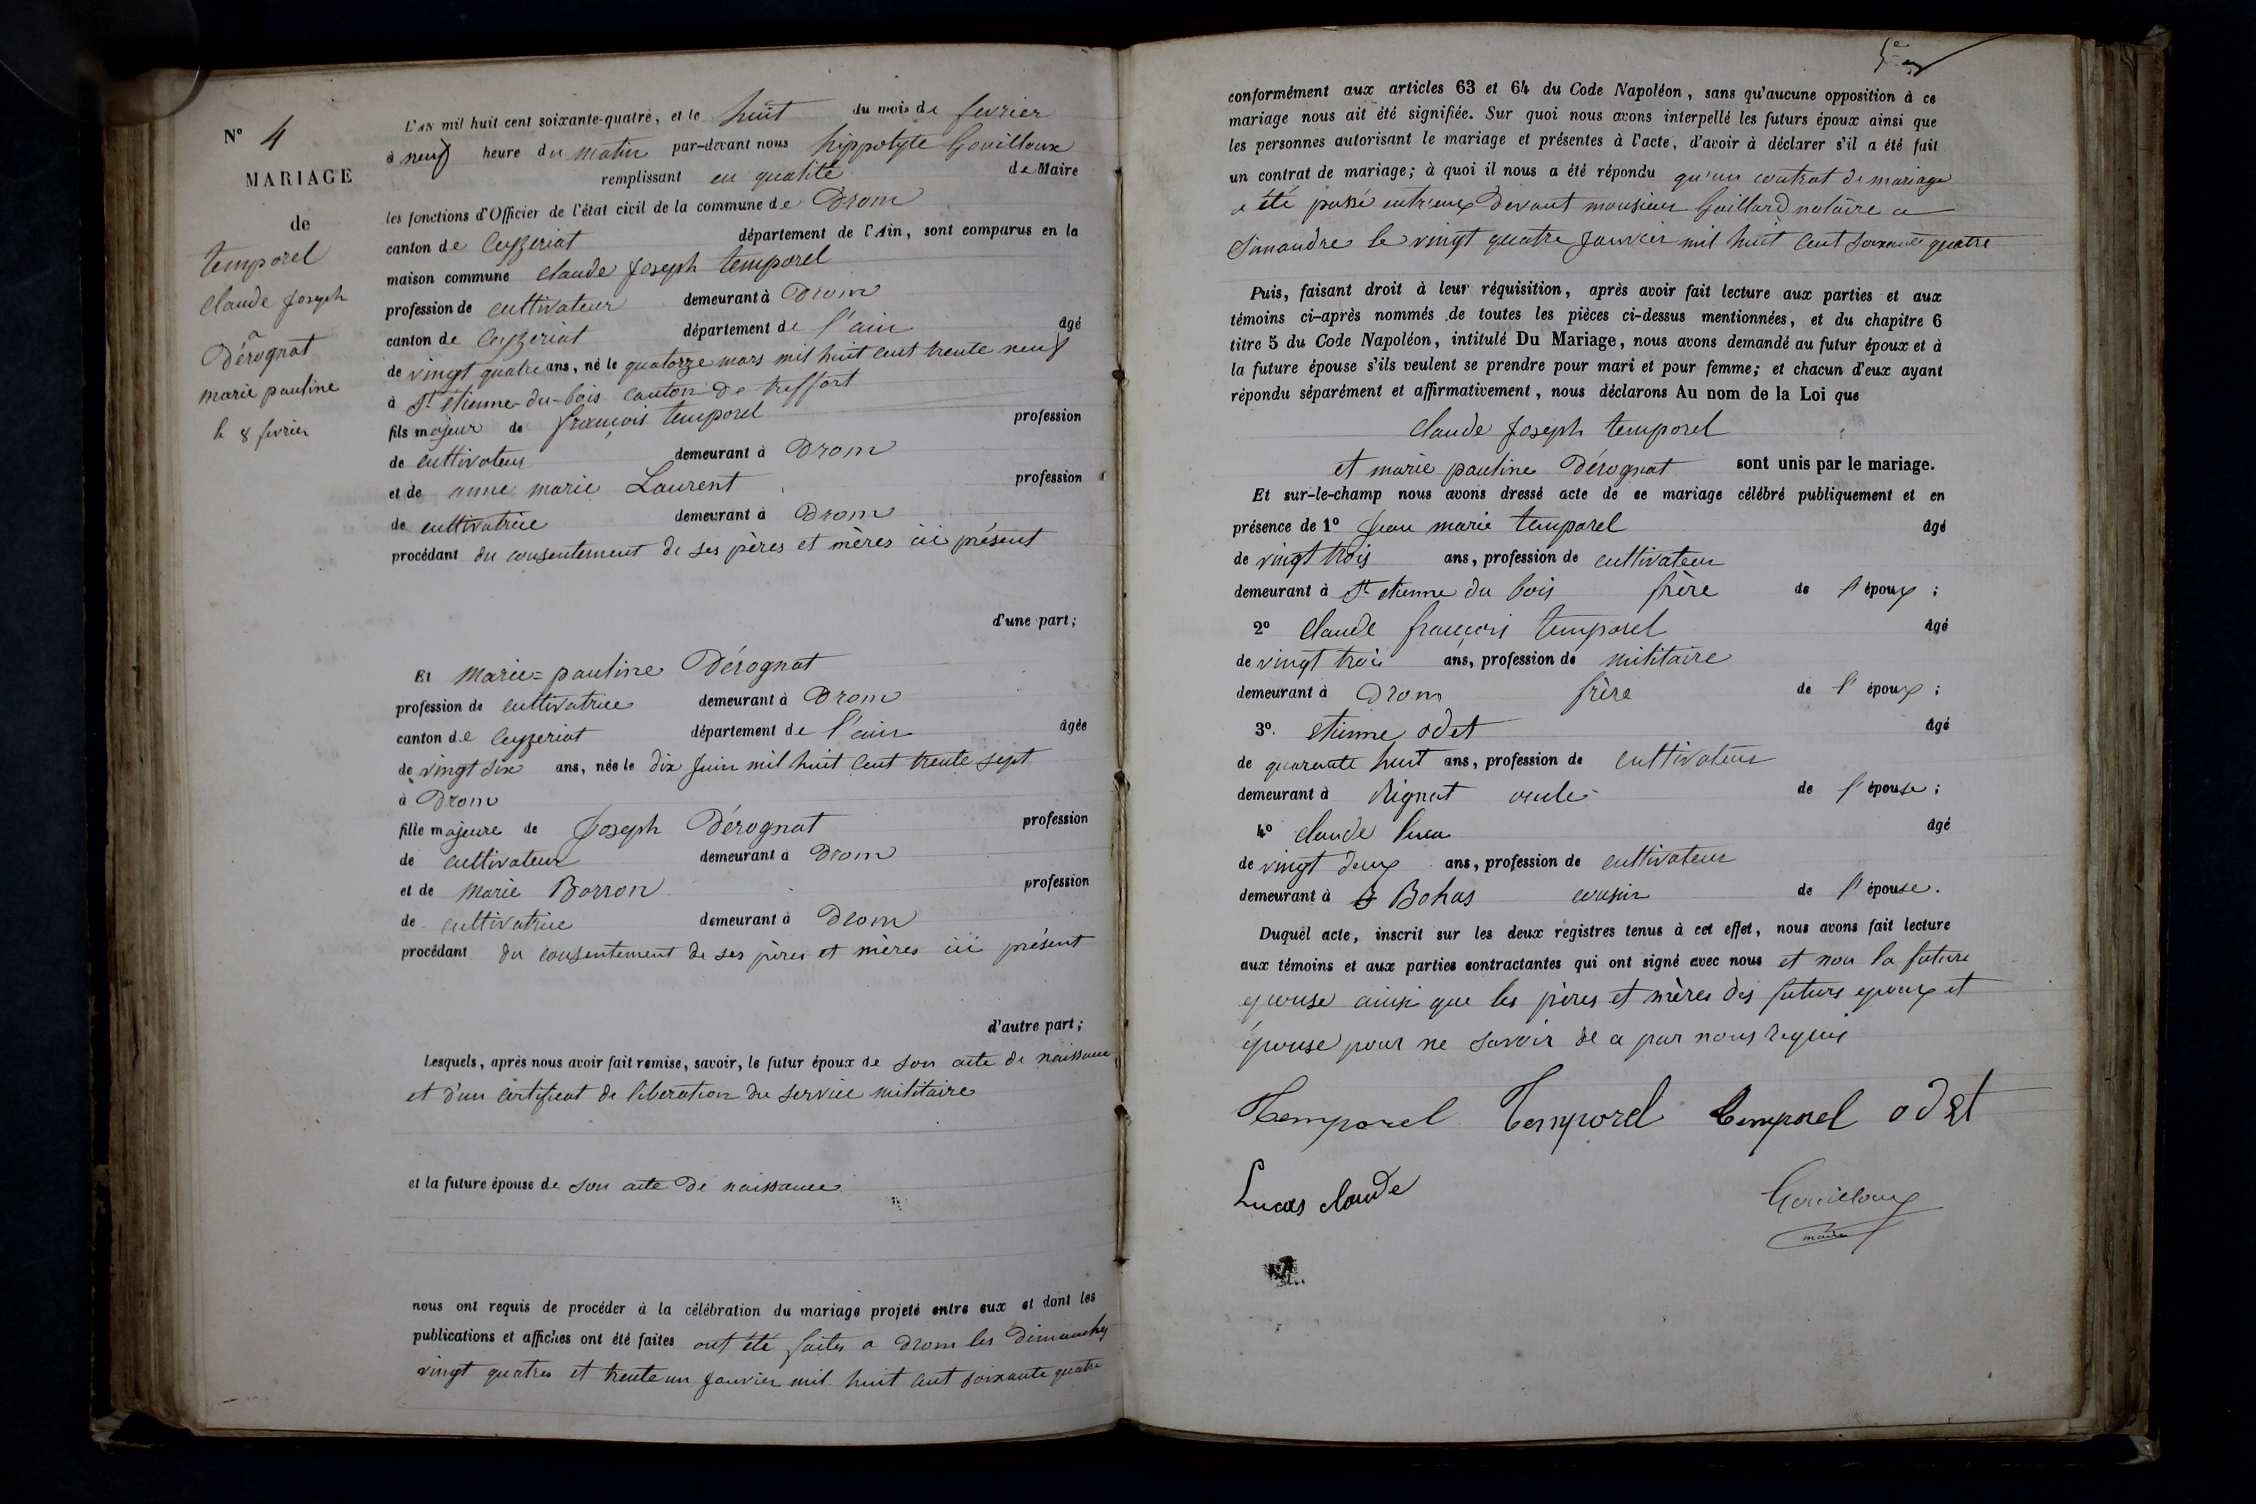 N° 4
MARIAGE
de
temporel
claude joseph
a
Dérognat
marie pauline
le 8 fevrier
L'AN mil huit cent soixante-quatre, et le huit du mois de fevrier
à neuf heure du matin par-devant nous hippolyte Gouilloux
remplissant en qualité de Maire
les fonctions d'Officier de l'état civil de la commune de Drom
canton de Ceyzeriat département de l'Ain, sont comparus en la
maison commune claude joseph temporel
profession de cultivateur demeurant à Drom
canton de Ceyzeriat département de l'ain âgé
de vingt quatre ans, né le quatorze mars mil huit cent trente neuf
à St etienne-du-bois canton de treffort
fils majeur de françois temporel profession
de cultivateur demeurant à Drom
et de anne marie Laurent profession
de cultivatrice demeurant à Drom
procédant du consentement de ses pères et mères ici présent
d'une part;
Et Marie=pauline Dérognat
profession de cultivatrice demeurant à Drom
canton de Ceyzeriat département de l'ain âgée
de vingt six ans, née le dix juin mil huit cent trente sept
à Drom
fille majeure de Joseph Dérognat profession
de cultivateur demeurant à Drom
et de Marie Borron profession
de cultivatrice demeurant à Drom
procédant du consentement de ses pères et mères ici présent
d'autre part;
Lesquels, après nous avoir fait remise, savoir, le futur époux de son acte de naissance
et d'un certificat de liberation du service militaire
et la future épouse de son acte de naissance
nous ont requis de procéder à la célébration du mariage projeté entre eux et dont les
publications et affiches ont été faites ont été faites a Drom les dimanches
vingt quatres et trente un janvier mil huit cent soixante quatre
5e
conformément aux articles 63 et 64 du Code Napoléon, sans qu'aucune opposition à ce
mariage nous ait été signifiée. Sur quoi nous avons interpellé les futurs époux ainsi que
les personnes autorisant le mariage et présentes à l'acte, d'avoir à déclarer s'il a été fait
un contrat de mariage; à quoi il nous a été répondu qu'un contrat de mariage
a été passé entr'eux devant monsieur Gaillard notaire a
Simandre le vingt quatre janvier mil huit cent soixante quatre
Puis, faisant droit à leur réquisition, après avoir fait lecture aux parties et aux
témoins ci-après nommés de toutes les pièces ci-dessus mentionnées, et du chapitre 6
titre 5 du Code Napoléon, intitulé Du Mariage, nous avons demandé au futur époux et à
la future épouse s'ils veulent se prendre pour mari et pour femme; et chacun d'eux ayant
répondu séparément et affirmativement, nous déclarons Au nom de la Loi que
claude joseph temporel
et marie pauline Dérognat sont unis par le mariage.
Et sur-le-champ nous avons dressé acte de ce mariage célébré publiquement et en
présence de 1° jean marie temporel âgé
de vingt trois ans, profession de cultivateur
demeurant à St etienne du bois frère de l'époux;
2° claude françois temporel âgé
de vingt trois ans, profession de militaire
demeurant à Drom frère de l'époux;
3° etienne odet âgé
de quarante huit ans, profession de cultivateur
demeurant à Rignat oncle de l'épouse;
4° claude Luca âgé
de vingt deux ans, profession de cultivateur
demeurant à Bohas cousin de l'épouse.
Duquel acte, inscrit sur les deux registres tenus à cet effet, nous avons fait lecture
aux témoins et aux parties contractantes qui ont signé avec nous et non la future
epouse ainsi que les pères et mères des futurs epoux et
épouse pour ne savoir de a par nous requis
Temporel Temporel temporel odet
Lucas claude Gouilloux
maire